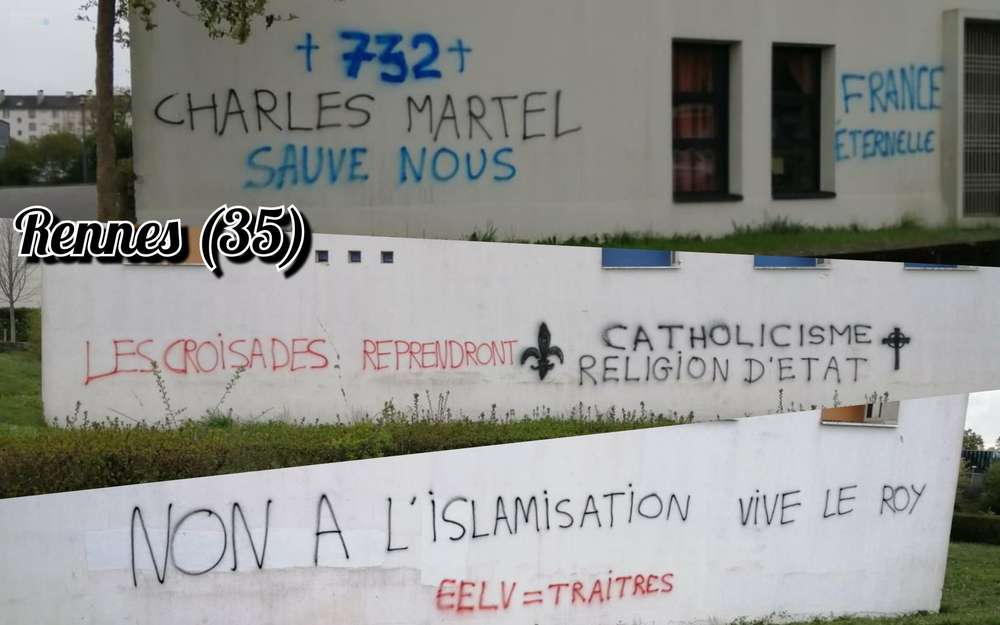 † 732 †
CHARLES MARTEL
SAUVE NOUS
FRANCE
ÉTERNELLE
Rennes (35)
LES CROISADES REPRENDRONT
CATHOLICISME
RELIGION D'ETAT
NON A L'ISLAMISATION VIVE LE ROY
EELV = TRAITRES